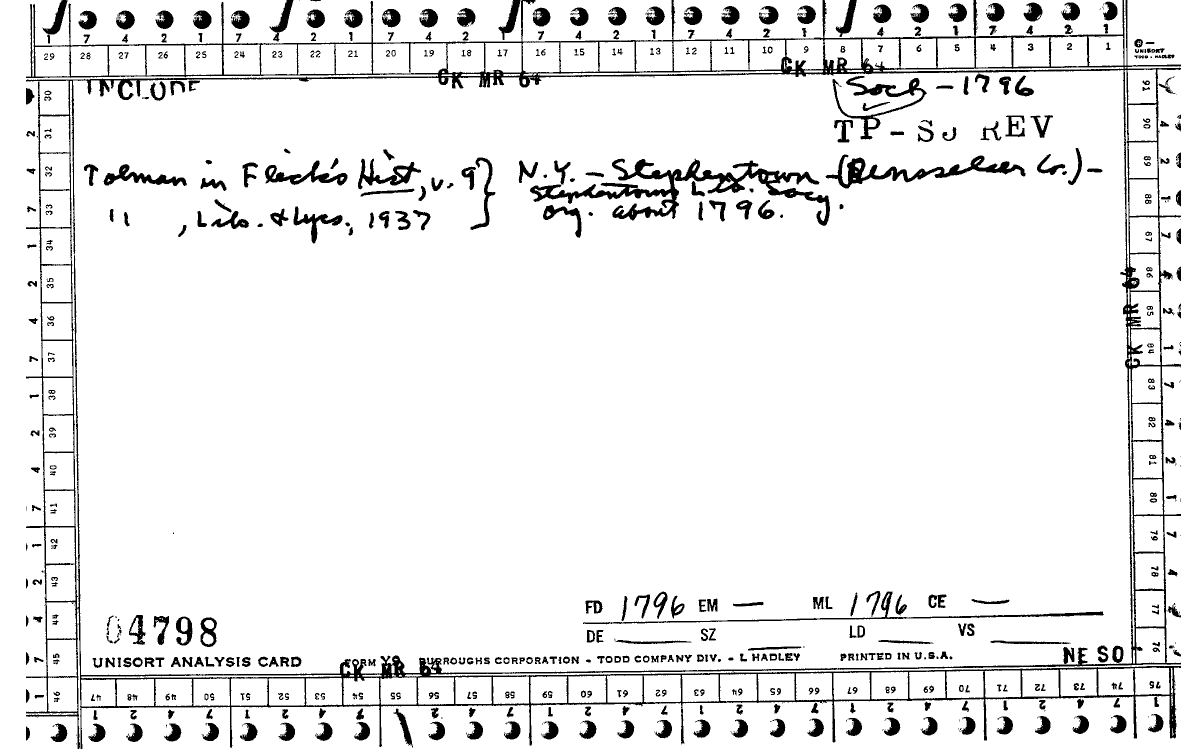 7 4 2 1 7 4 2 1 7 4 2 1 7 4 2 1 7 4 2 1
29 28 27 26 25 24 23 22 21 20 19 18 17 16 15 14 13 12 11 10 9 8 7 6 5 4 3 2 1
UNISORT
TODD - HADLEY
CK MR 64 CK MR 64
INCLUDE Soch - 1796
TP - SO REV
Tolman in Flick's Hist, v. 9 } N.Y. - Stephentown - (Rensselaer Co.) -
" , Lib. & Lycs., 1937 } Stephentown Lib. Socy.
org. about 1796.
30 31 32 33 34 35 36 37 38 39 40 41 42 43 44 45 46
91 90 89 88 87 86 85 84 83 82 81 80 79 78 77 76
CK MR 64
FD 1796 EM — ML 1796 CE —
04798
DE SZ LD VS
UNISORT ANALYSIS CARD FORM Y9 BURROUGHS CORPORATION - TODD COMPANY DIV. - L HADLEY PRINTED IN U.S.A. NE SO
CK MR 64
47 48 49 50 51 52 53 54 55 56 57 58 59 60 61 62 63 64 65 66 67 68 69 70 71 72 73 74 75